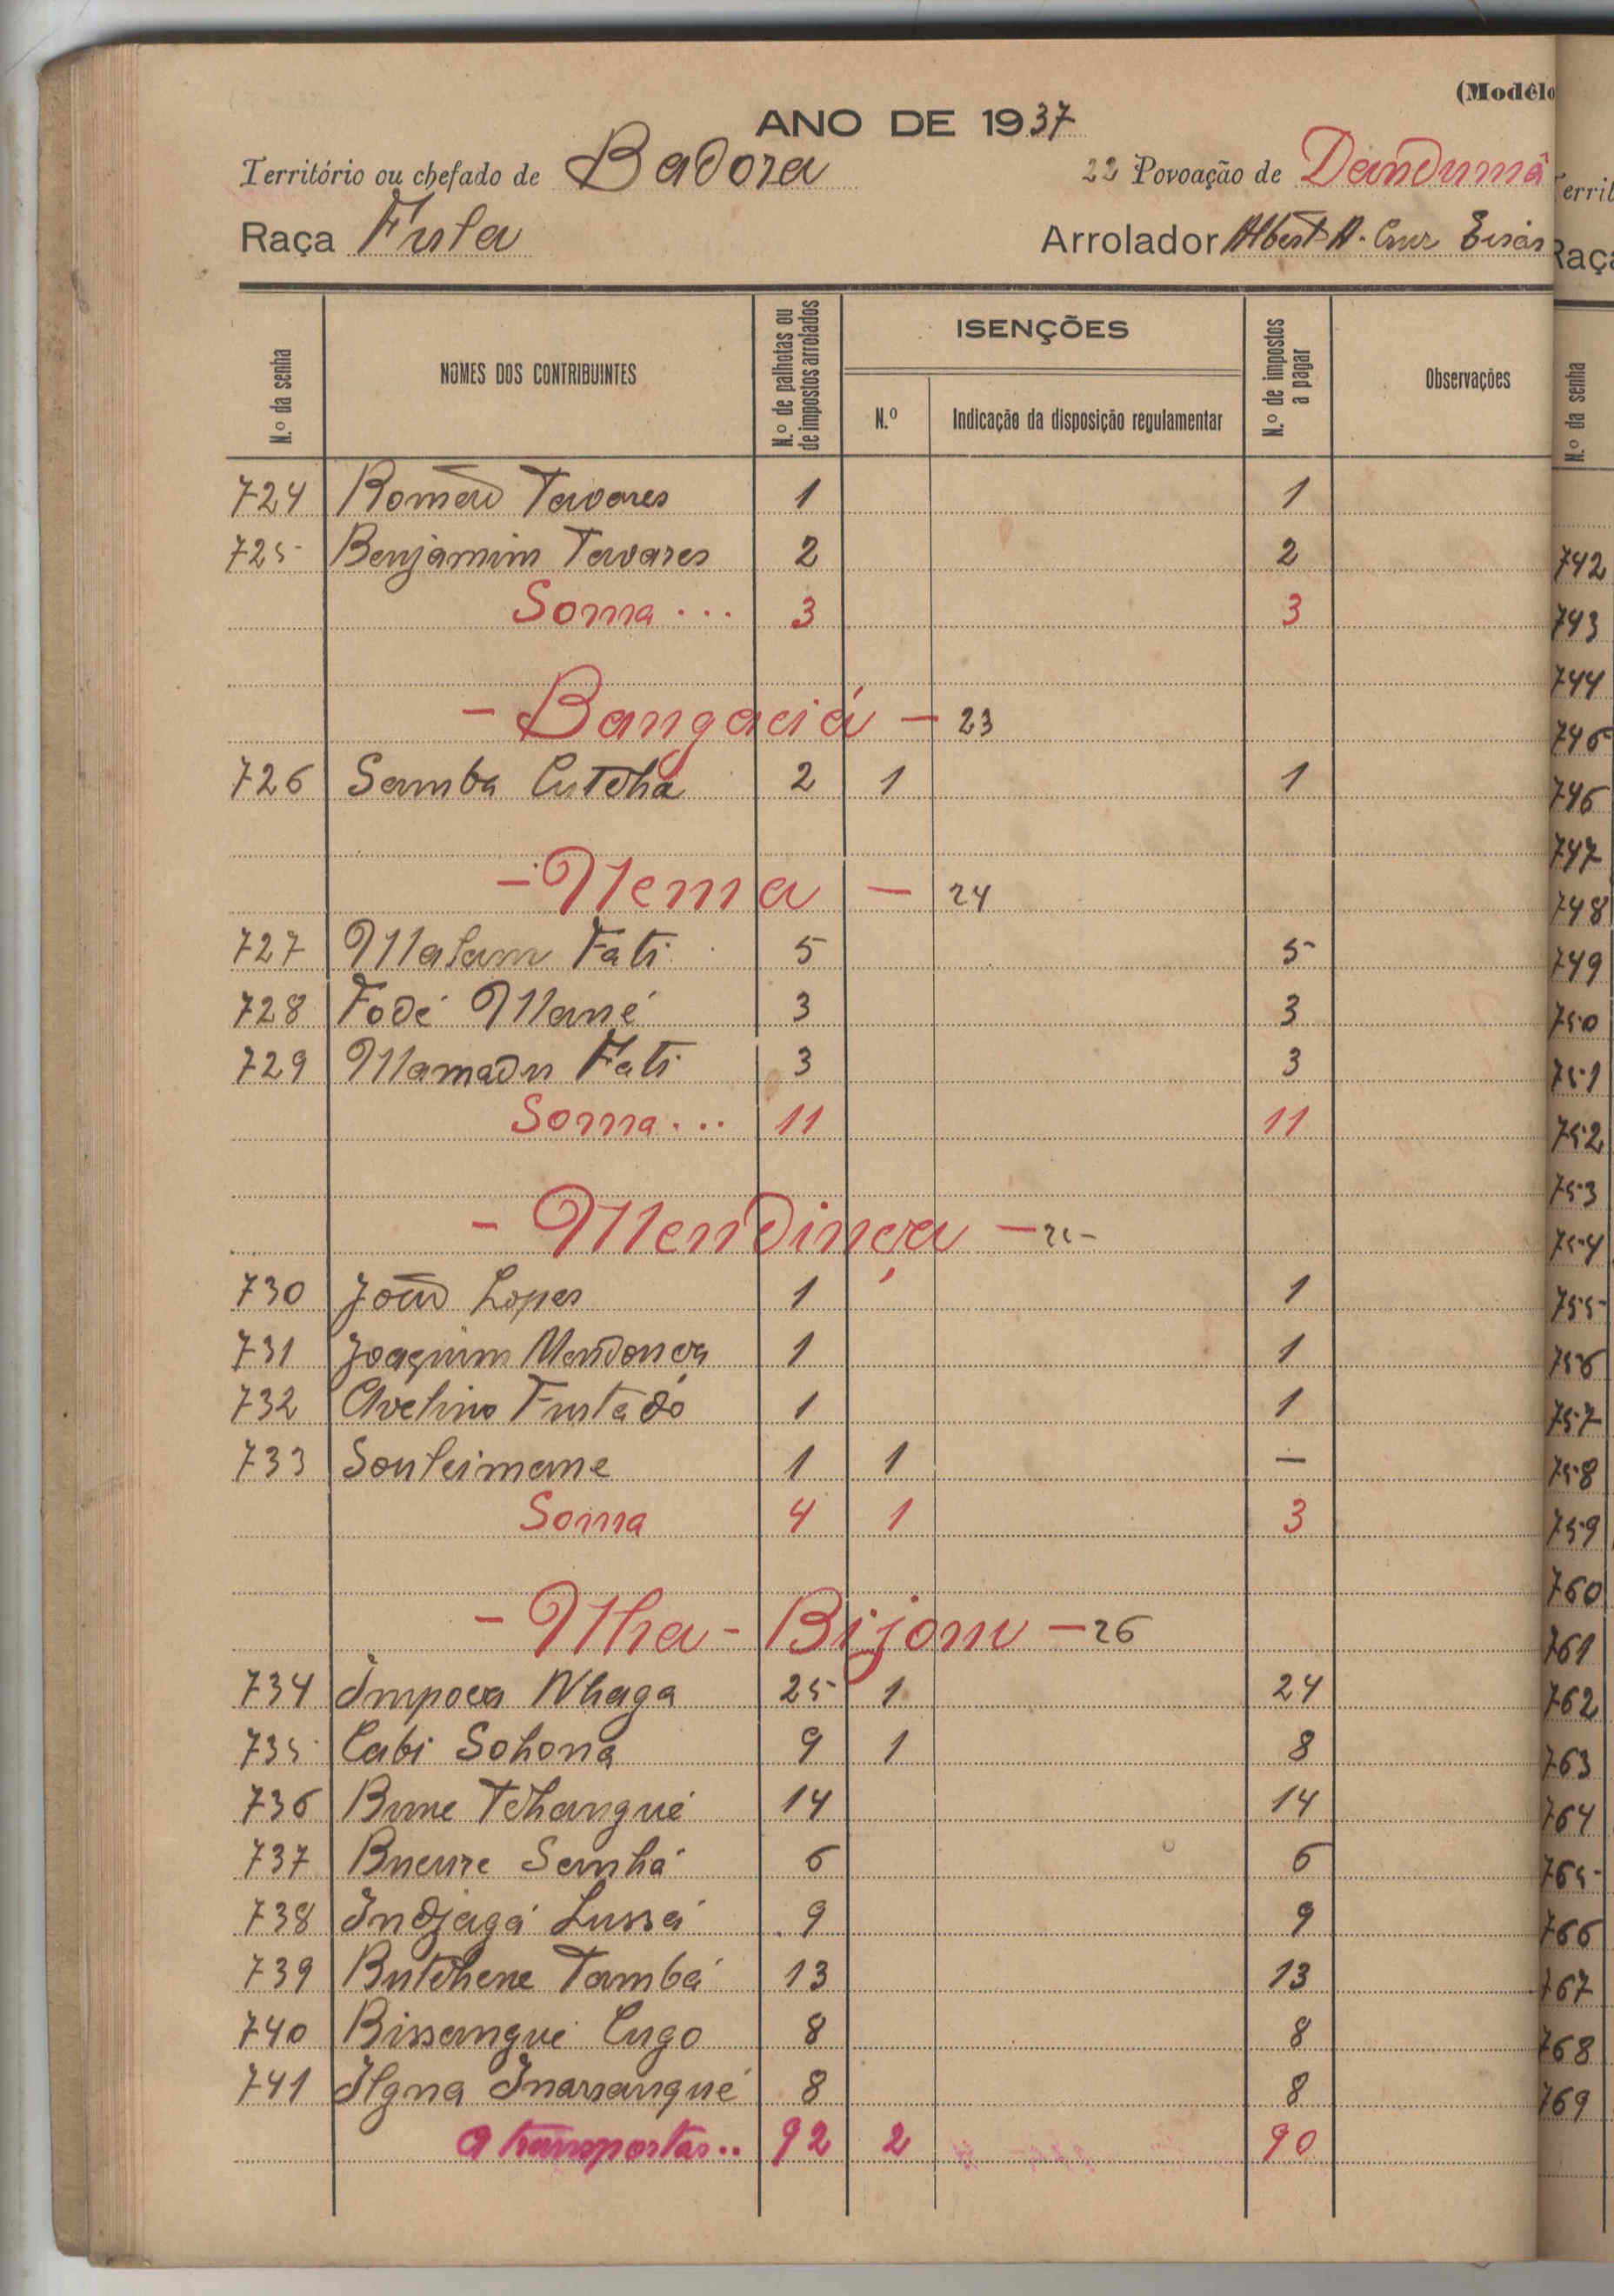 (Modêlo
ANO DE 1937
Território ou chefado de Badora 22 Povoação de Dandumâ
Raça Fula Arrolador Albert A. Cruz
N.º da senha NOMES DOS CONTRIBUINTES N.º de palhotas ou de impostos arrolados ISENÇÕES N.º Indicação da disposição regulamentar N.º de impostos a pagar Observações
724 Romão Tavares 1 1
725 Benjamim Tavares 2 2
Soma ... 3 3
- Bangaciá - 23
726 Samba Cutchá 2 1 1
- Nema - 24
727 Malam Fati 5 5
728 Fodé Mané 3 3
729 Mamadu Fati 3 3
Soma ... 11 11
- Mendinça - 25
730 João Lopes 1 1
731 Joaquim Mendonça 1 1
732 Avelino Furtado 1 1
733 Souleimane 1 1 —
Soma 4 1 3
- Ilha - Bijom - 26
734 Impoca Nhaga 25 1 24
735 Cabi Sohona 9 1 8
736 Bune Tchangué 14 14
737 Bneure Sanhá 6 6
738 Indjagá Lussá 9 9
739 Butchene Tambá 13 13
740 Bissangue Cugo 8 8
741 Ilgna 8 8
A transportar .. 92 2 90
Territ
Raça
N.º da senha
742
743
744
745
746
747
748
749
750
751
752
753
754
755
756
757
758
759
760
761
762
763
764
765
766
767
768
769